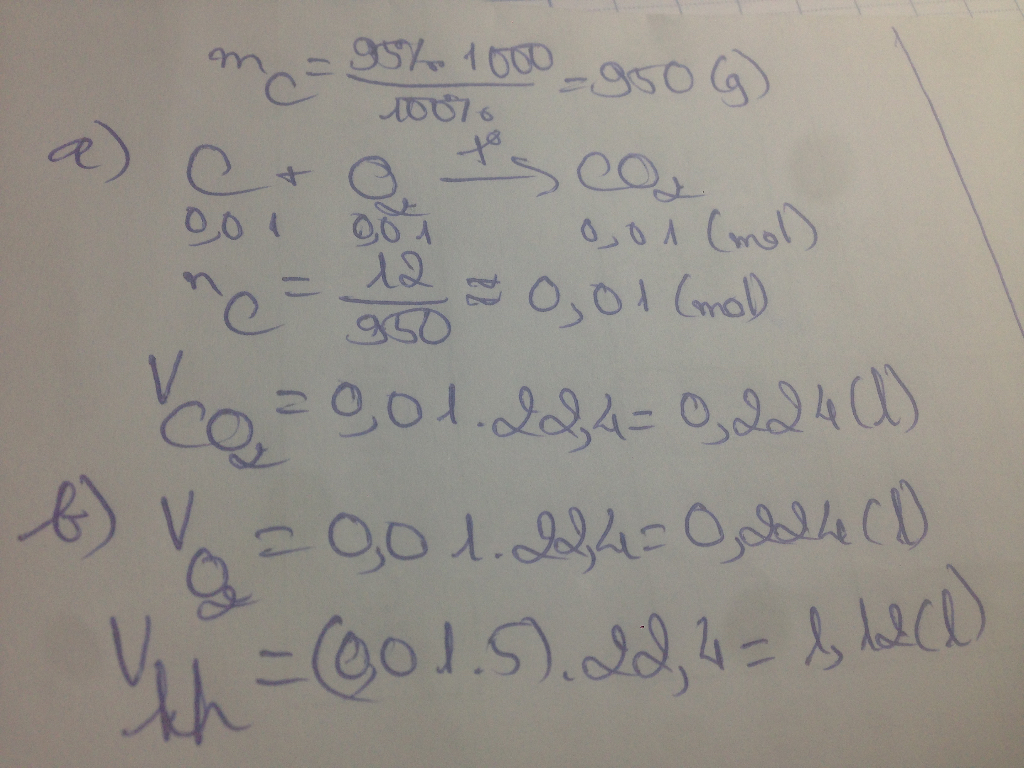 m_C = 95%. 1000 / 100% = 950 (g)
a) C + O₂ —t°→ CO₂
0,01 0,01 0,01 (mol)
n_C = 12 / 950 ≈ 0,01 (mol)
V_CO₂ = 0,01 . 22,4 = 0,224 (l)
b) V_O₂ = 0,01 . 22,4 = 0,224 (l)
V_kk = (0,01 . 5) . 22,4 = 1,12 (l)